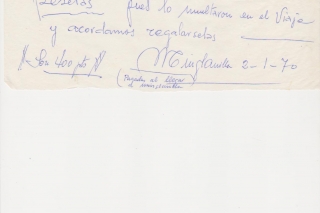 Pesetas pues lo multaron en el Viaje
y acordamos regalarselas
Son 400 pts Minglanilla 2-1-70
Pagados al llegar
a Minglanilla